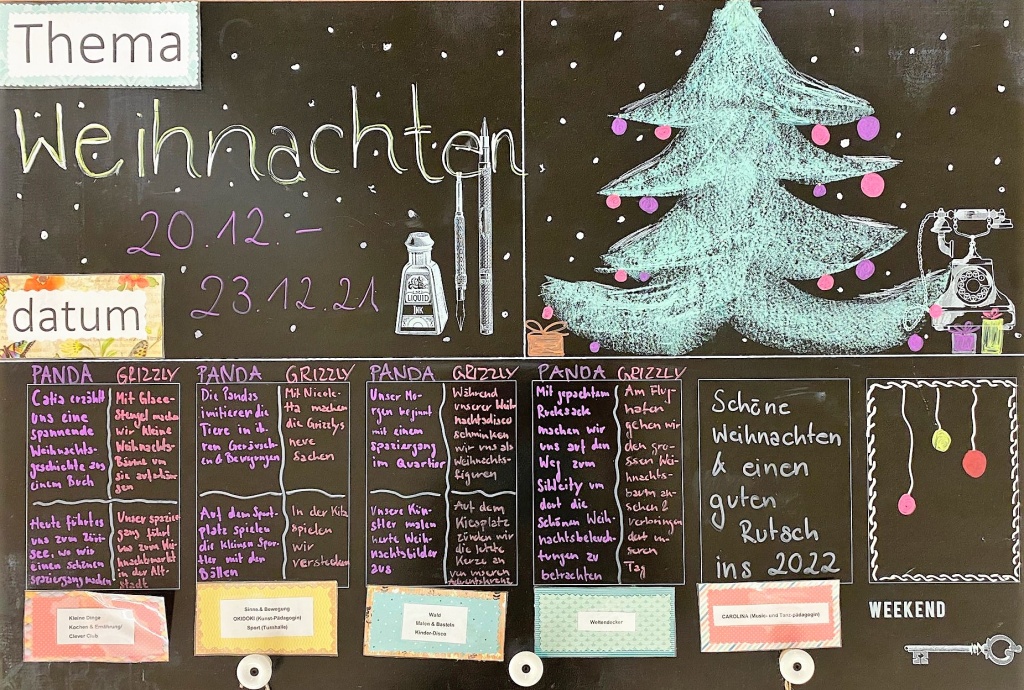 Thema
Weihnachten
20.12.-
23.12.21
LIQUID
INK
datum
PANDA GRIZZLY
Catia erzählt
uns eine
spannende
Weihnachts-
geschichte aus
einem Buch
Mit Glace-
Stengel machen
wir kleine
Weihnachts-
Bäume um
sie aufzuhän-
gen
Heute führt es
uns zum Züri-
see, wo wir
einen schönen
spaziergang machen
Unser spazier-
gang führt
uns zum Wei-
hnachtsmarkt
in der Alt-
stadt
PANDA GRIZZLY
Die Pandas
imitieren die
Tiere in ih-
ren Geräusch-
en & Bewegungen
Mit Nicole-
tta machen
die Grizzlys
neue
Sachen
Auf dem Sport-
platz spielen
die kleinen Spor-
tler mit den
Bällen
In der Kita
spielen
wir
verstecken
PANDA GRIZZLY
Unser Mo-
rgen beginnt
mit einem
spaziergang
im Quartier
Während
unserer Weih-
nachtsdisco
schminken
wir uns als
Weihnachts-
figuren
Unsere Kün-
stler malen
heute Weih-
nachtsbilder
aus
Auf dem
Kiesplatz
zünden wir
die letzte
Kerze an
von unseren
Adventskranz
PANDA GRIZZLY
Mit gepacktem
Rucksack
machen wir
uns auf den
Weg zum
Sihlcity um
dort die
Schönen Weih-
nachtsbeleuch-
tungen zu
betrachten
Am Flug-
hafen
gehen wir
den gro-
ssen Wei-
hnachts-
baum an-
sehen &
verbringen
dort un-
seren
Tag
Schöne
Weihnachten
& einen
guten
Rutsch
ins 2022
Kleine Dinge
Kochen & Ernährung/
Clever Club
Sinne & Bewegung
OKIDOKI (Kunst-Pädagogin)
Sport (Turnhalle)
Wald
Malen & Basteln
Kinder-Disco
Weltendecker
CAROLINA (Musik- und Tanzpädagogin)
WEEKEND